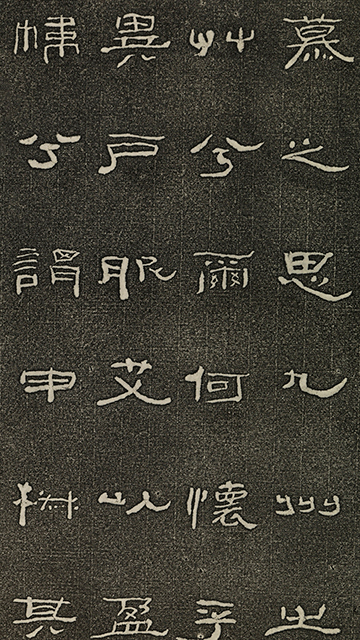 慕之思九州之
艸兮爾何懷乎
異戶服艾以盈
幃兮謂申椒其